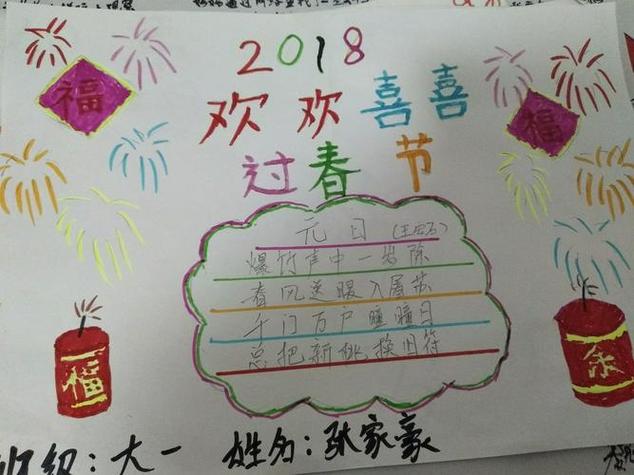 2018
福
欢欢喜喜
福
过春节
元日(王安石)
爆竹声中一岁除
春风送暖入屠苏
千门万户曈曈日
总把新桃换旧符
福
班级:大一 姓名:张家豪